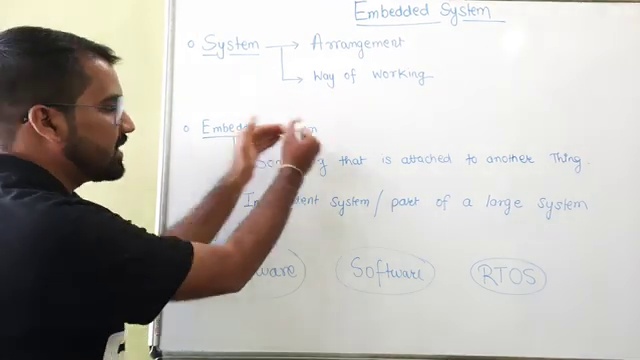 Embedded System
System → Arrangement
→ Way of working
that is attached to another Thing.
system / part of a large system
Software RTOS